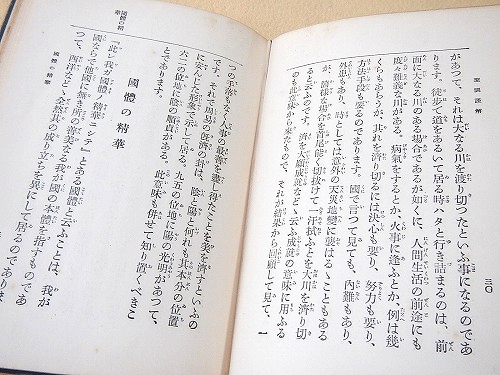 聖訓謹解
三〇
があつて、それは大なる川を渡り切つたといふ事になるのであ
ります。徒歩で道をあるいて居る時ハタと行き詰まるのは、前
面に大なる川のある場合であるが如くに、人間生活の前途にも
度々難義な川がある。病氣をするとか、火事に逢ふとか、例は幾
くらもあらうが、其れを濟り切るには決心も要り、努力も要り、
方法手段も要るのであります。國で言つて見ても、內難もあり、
外患もあり、時としては意外の天災地變に襲はるゝこともある
が、諸樣な場合を首尾能く切拔けて一汗拭ふとを大川を濟り切
ると云ふのです。濟を大願成就などゝ云ふ成就の意味に用ふる
のも此意味から來たのので、それが結果から回顧して見て、一
國體の精華
つの手落もなく人事の最善を盡し得たことを美を濟すといふの
です。それで周易の旣濟の卦は、陰と陽と何れも其本分の位置
に安んじた形象で示して居る。九五の位地に陽の光明があつて、
六二の位地に陰の順貞がある。此意味も併せて知り置くべきこ
とであります。
國體の精華
『此レ我カ國體ノ精華ニシテ』とある國體と云ふことは、我が
國ならで他國に無き所の善美なる我が國の本體を指すものであ
つて、西洋などゝ全然其の成り立ちを異にして居るのでありま
國體の精華